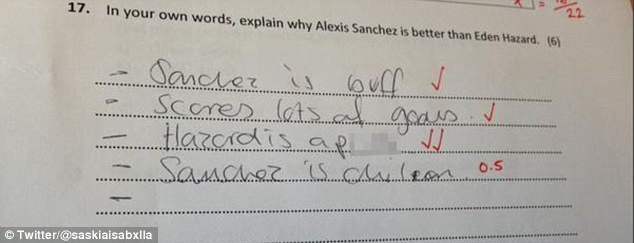 22
17. In your own words, explain why Alexis Sanchez is better than Eden Hazard. (6)
- Sanchez is buff ✓
- Scores lots of goals ✓
- Hazard is a p ✓✓
- Sanchez is chilean 0.5
-
© Twitter/@saskiaisabxlla